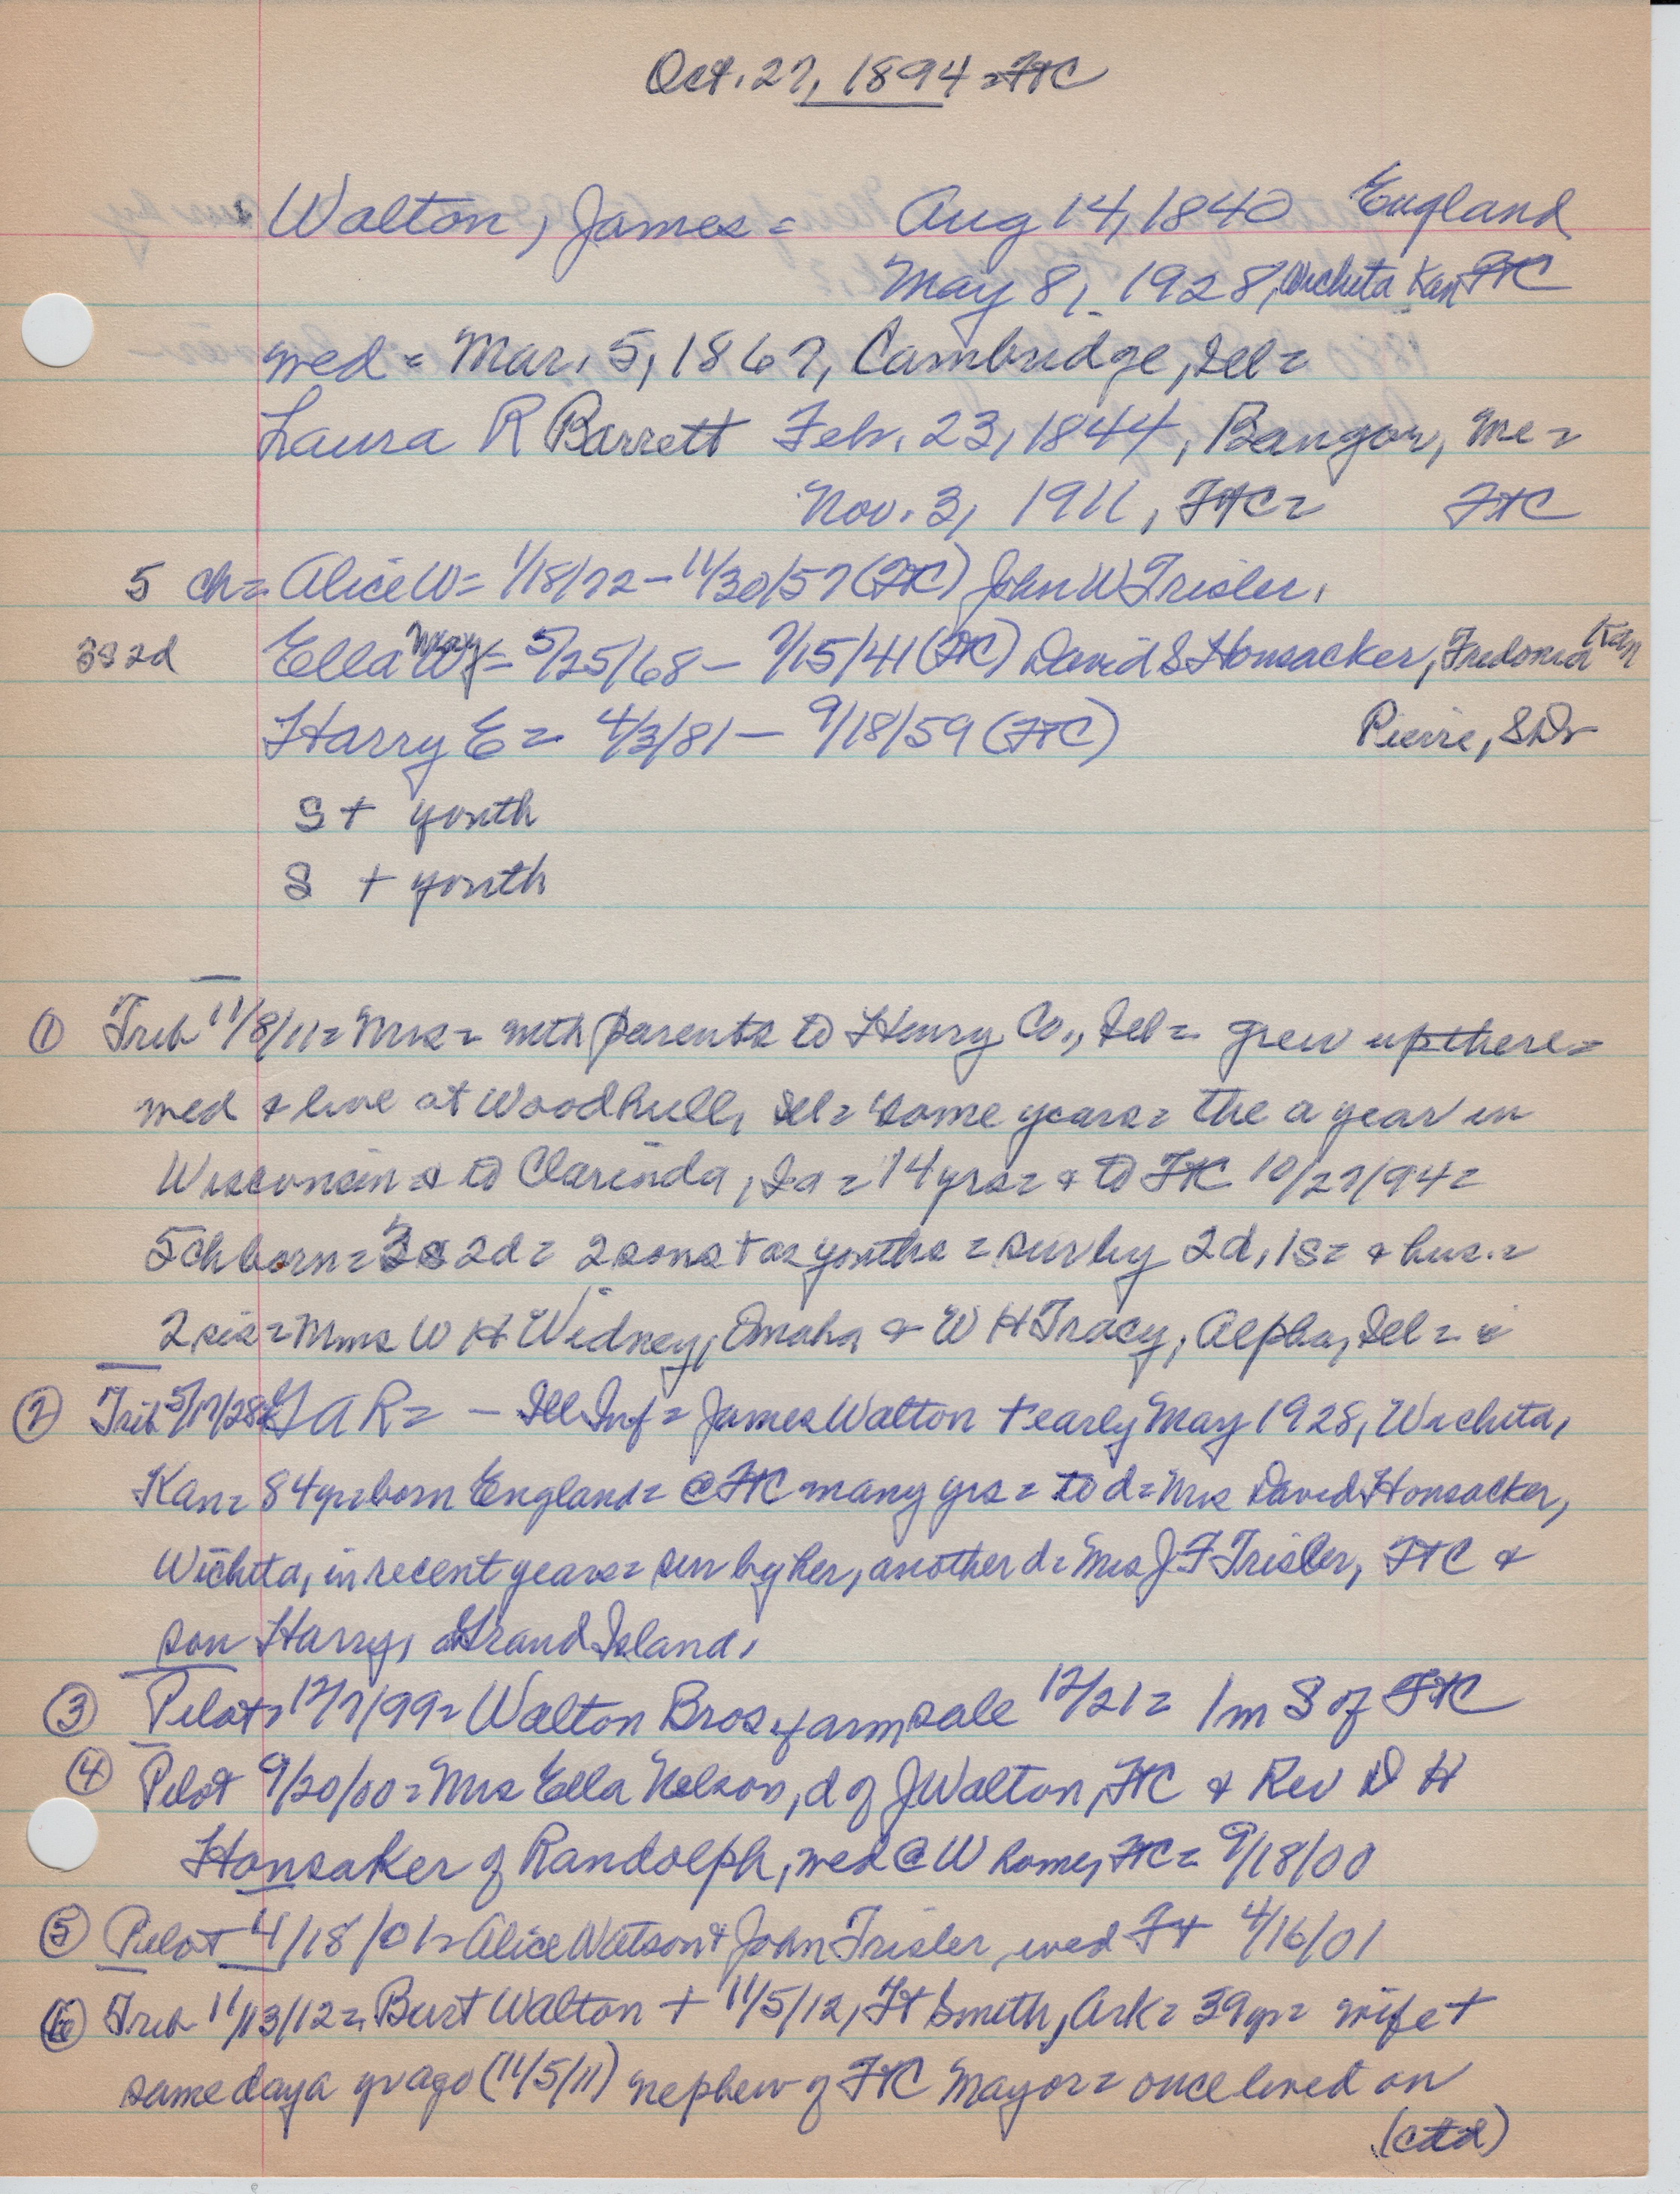 Oct. 27, 1894 = FtC
Walton, James = Aug 14, 1840 England
May 8, 1928, Wichita Kan FtC
wed = Mar. 5, 1867, Cambridge, Ill =
Laura R Barrett Feb. 23, 1844, Bangor, Me =
Nov. 3, 1911, FtC = FtC
5 ch = Alice W = 1/18/72 - 11/30/57 (FtC) John W Trisler.
3s 2d Ella May = 5/25/68 - 7/15/41 (FtC) David S Honsacker, Fredonia Kan
Harry E = 4/3/81 - 9/18/59 (FtC) Pierre, SD
S + youth
S + youth
① Trib 11/8/11 = Mrs = with parents to Henry Co., Ill = grew up there =
wed & live at Woodhull, Ill = some years = the a year in
Wisconsin & to Clarinda, Ia = 14 yrs = & to FtC 10/27/94 =
5 ch born = 3s 2d = 2 sons + as youths = sur by 2d, 1s = & hus. =
2 sis = Mms W H Widney, Omaha & W H Tracy, Alpha, Ill =
② Trib 5/17/28 = GAR = - Ill Inf = James Walton + early May 1928, Wichita,
Kan = 84 yr = born England = @ FtC many yrs = to d = Mrs David Honsacker,
Wichita, in recent years = sur by her, another d = Mrs J F Trisler, FtC &
son Harry, Grand Island.
③ Pilot = 12/7/99 = Walton Bros farm sale 12/21 = 1m S of FtC
④ Pilot 9/20/00 = Mrs Ella Nelson, d of J Walton, FtC & Rev D H
Honsaker of Randolph, wed @ W home, FtC = 9/18/00
⑤ Pilot 4/18/01 = Alice Watson & John Trisler wed Ft 4/16/01
⑥ Trib 11/13/12 = Burt Walton + 11/5/12, Ft Smith, Ark = 39 yr = wife +
same day a yr ago (11/5/11) nephew of FtC Mayor = once lived on
(ctd)